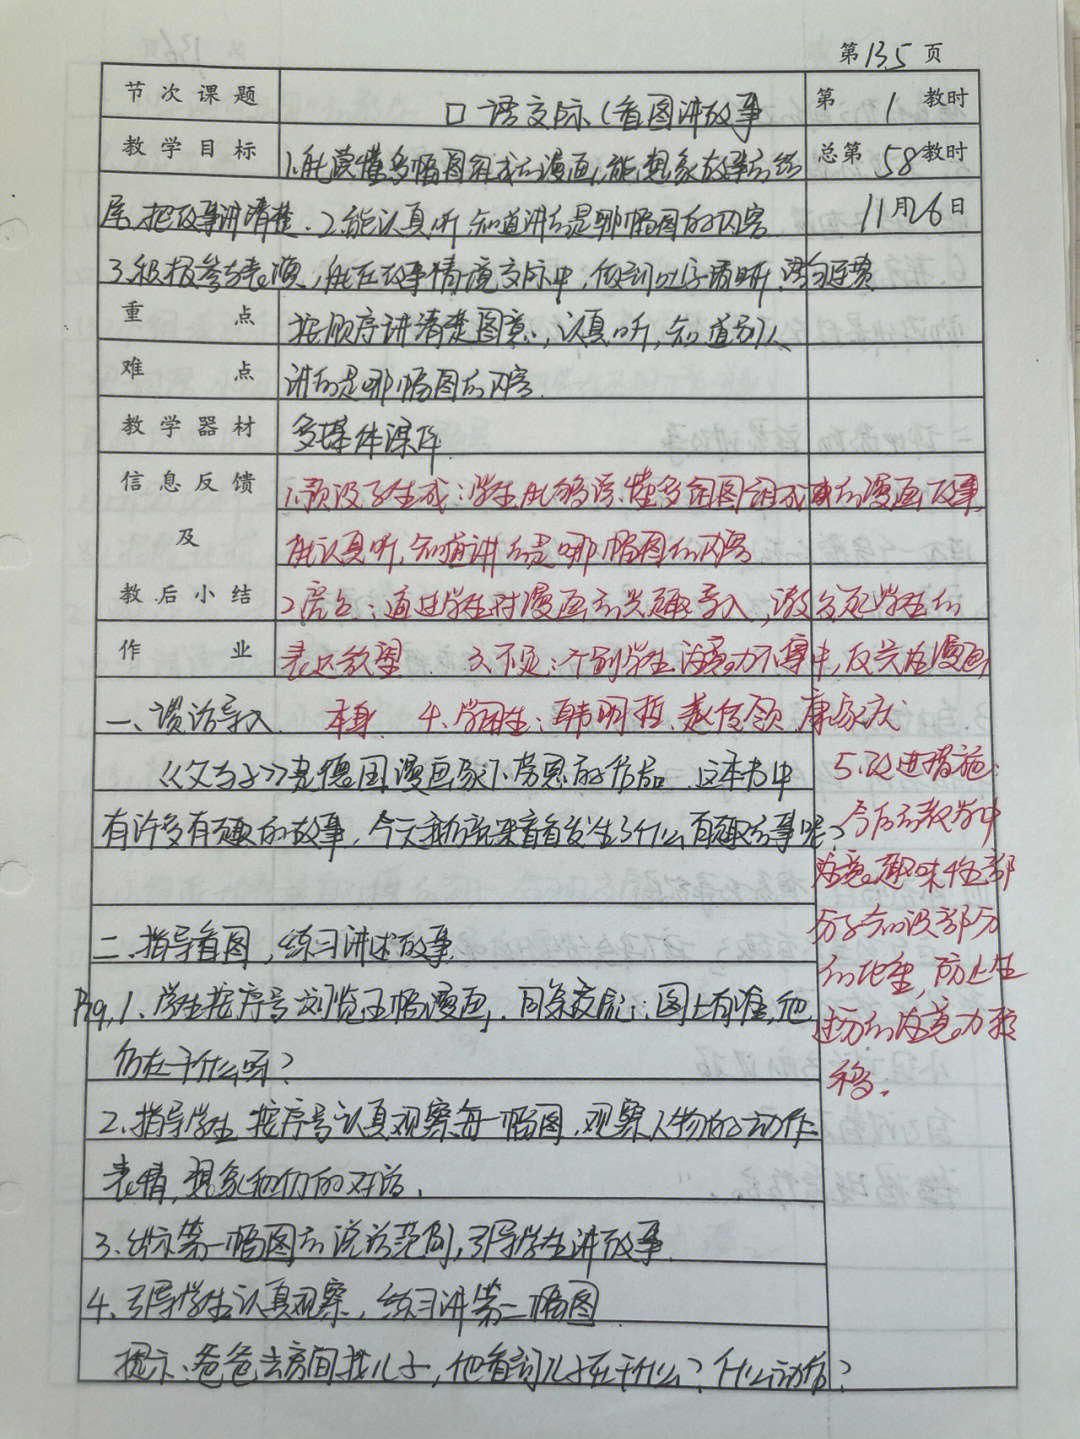 第135页
节次课题 口语交际(看图讲故事 第1教时
教学目标 1.能读懂多幅图组成的漫画,能想象故事的结 总第58教时
尾,把故事讲清楚.2.能认真听,知道讲的是哪幅图的内容 11月26日
3.积极参与表演,能在故事情境交际中,做到吐字清晰,语句连贯
重点 按顺序讲清楚图意,认真听,知道别人
难点 讲的是哪幅图的内容.
教学器材 多媒体课件
信息反馈 1.预设与生成:学生能够读懂多幅图组成的漫画故事,
及 能认真听,知道讲的是哪幅图的内容
教后小结 2.亮点:通过学生对漫画的兴趣导入,激发起学生的
作业 表达欲望 3.不足:个别学生注意力不集中,反关注漫画
一、谈话导入 本身 4.学困生:韩明哲
《父与子》是德国漫画家卜劳恩的作品.这本书中 5.改进措施:
有许多有趣的故事,今天我们就来看看发生了什么有趣的事呢? 今后的教学中
注意趣味性部
二、指导看图,练习讲述故事. 分与知识部分
的比重,防止学
1、学生按序号浏览五幅漫画,同桌交流:图上有谁,他 生过分的注意力转
们在干什么呢? 移.
2、指导学生按序号认真观察每一幅图,观察人物的动作
表情,想象他们的对话.
3、出示第一幅图的说话范例,引导学生讲故事.
4、引导学生认真观察,练习讲第二幅图
提示:爸爸去房间找儿子,他看到儿子在干什么?什么动作?